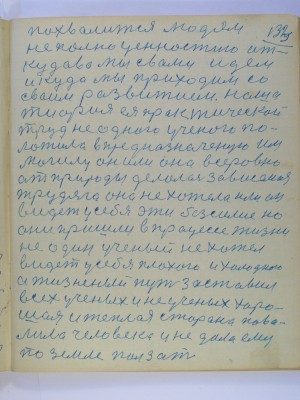 похвалится людям
неполноценностью от-
кудава мы свами идем
и куда мы приходим со
своим развитием. наша
тиория ея практической
труд не одного ученого по-
ложила в предназначеную им
могилу он или она всеровно
от природы делалас зависеная
трудяга она не хотела или он
видет у себя эти безсилие но
они пришли в працессе жизни
не один ученый не хотел
видет у себя плохого и холодного
а жизненый путь заставил
всех ученых и не ученых харо-
шая и теплая сторана пова-
лила человека и не дала ему
по земле ползат